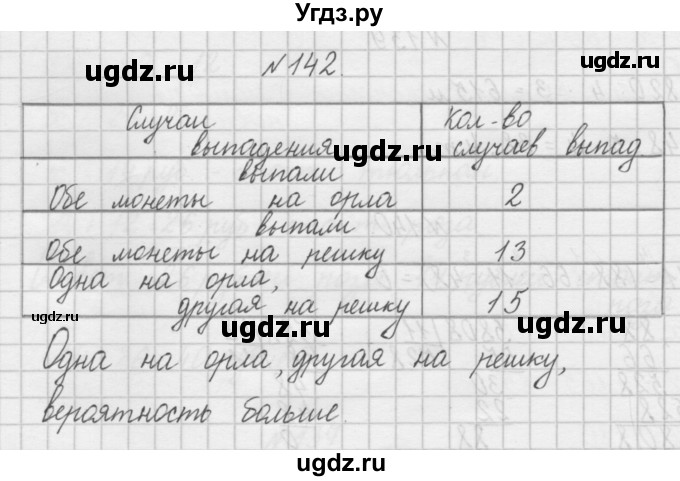 Угдз.ру
№142.
Случаи Кол-во
выпадения случаев выпад
выпали
Обе монеты на орла 2
выпали
Обе монеты на решку 13
Одна на орла,
другая на решку 15
Одна на орла, другая на решку,
вероятность больше.
ugdz.ru
ugdz.ru
ugdz.ru
ugdz.ru
ugdz.ru
ugdz.ru
ugdz.ru
ugdz.ru
ugdz.ru
ugdz.ru
ugdz.ru